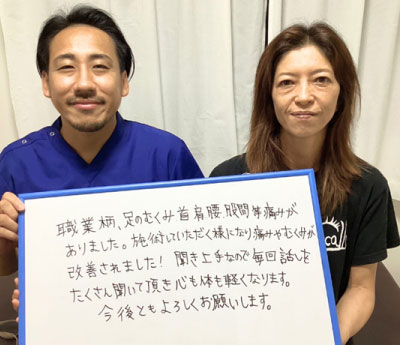 職業柄、足のむくみ首肩腰、股関節痛みが
ありました。施術していただく様になり痛みやむくみが
改善されました！聞き上手なので毎回話しを
たくさん聞いて頂き心も体も軽くなります。
今後ともよろしくお願いします。